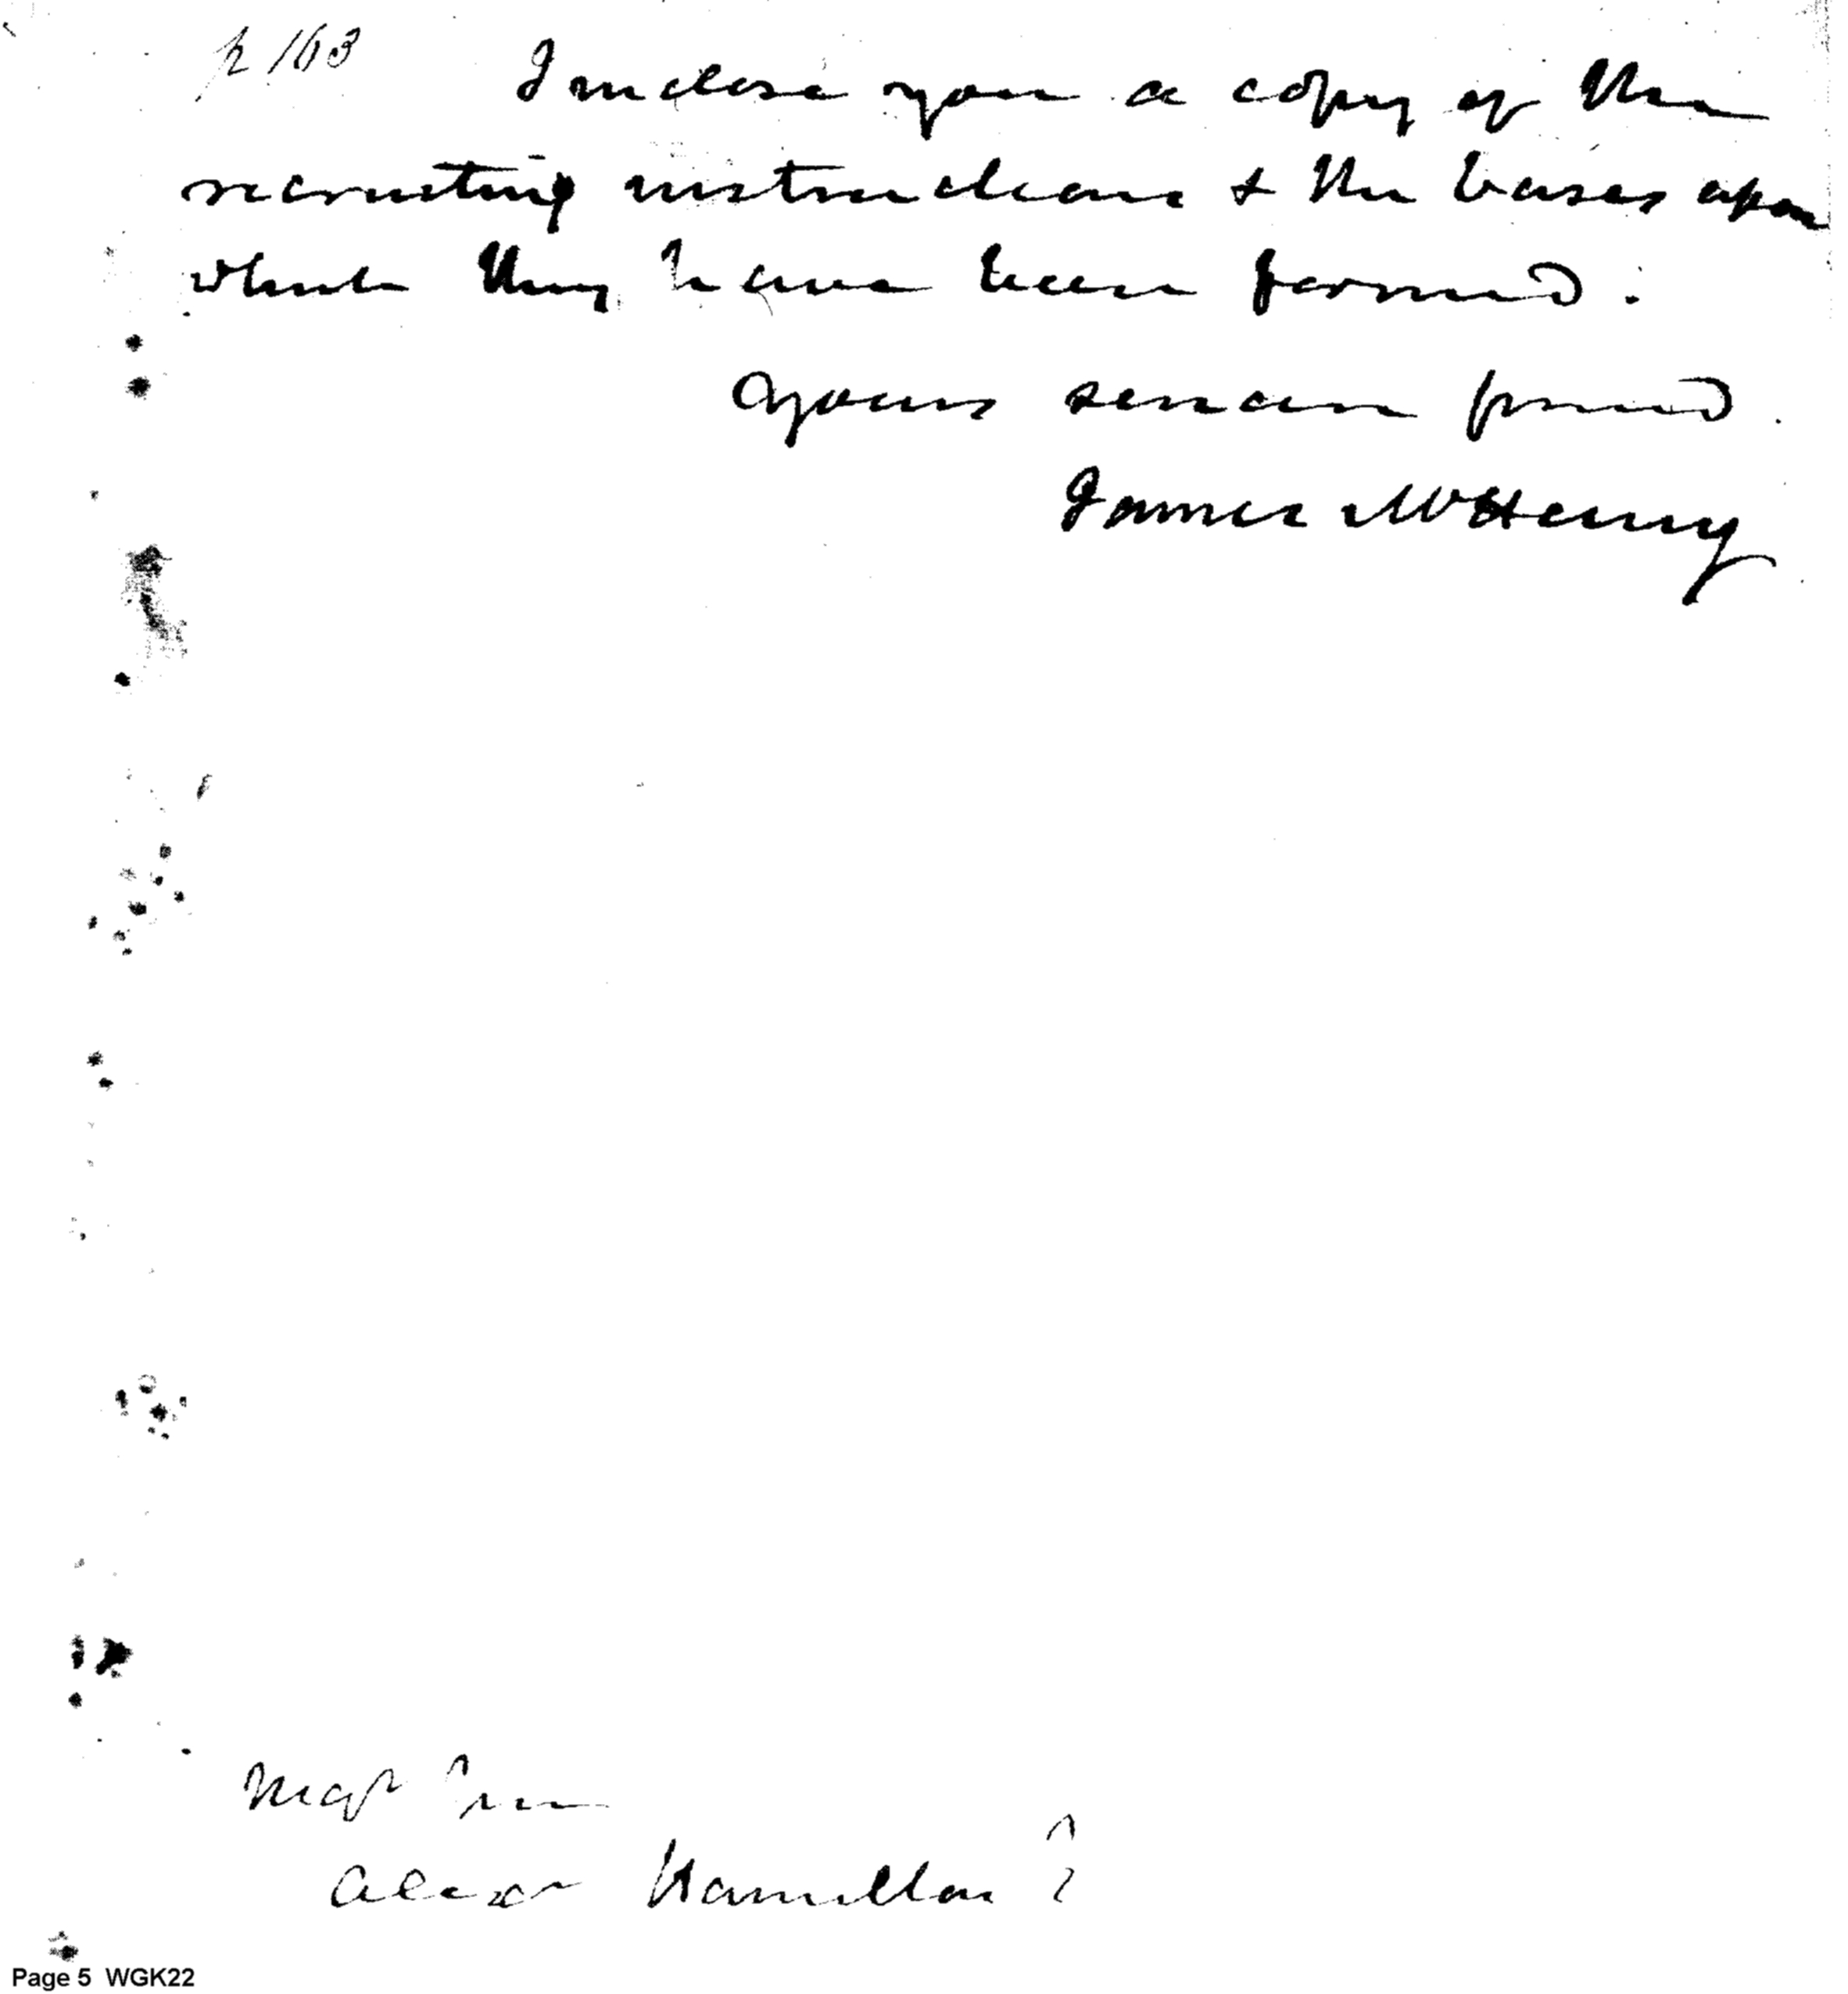 p 163
I inclose you a copy of the
recruiting instructions & the bases upon
which they have been formed:
Yours sincerely
James McHenry
Maj Gen
Alexr Hamilton ?
Page 5 WGK22